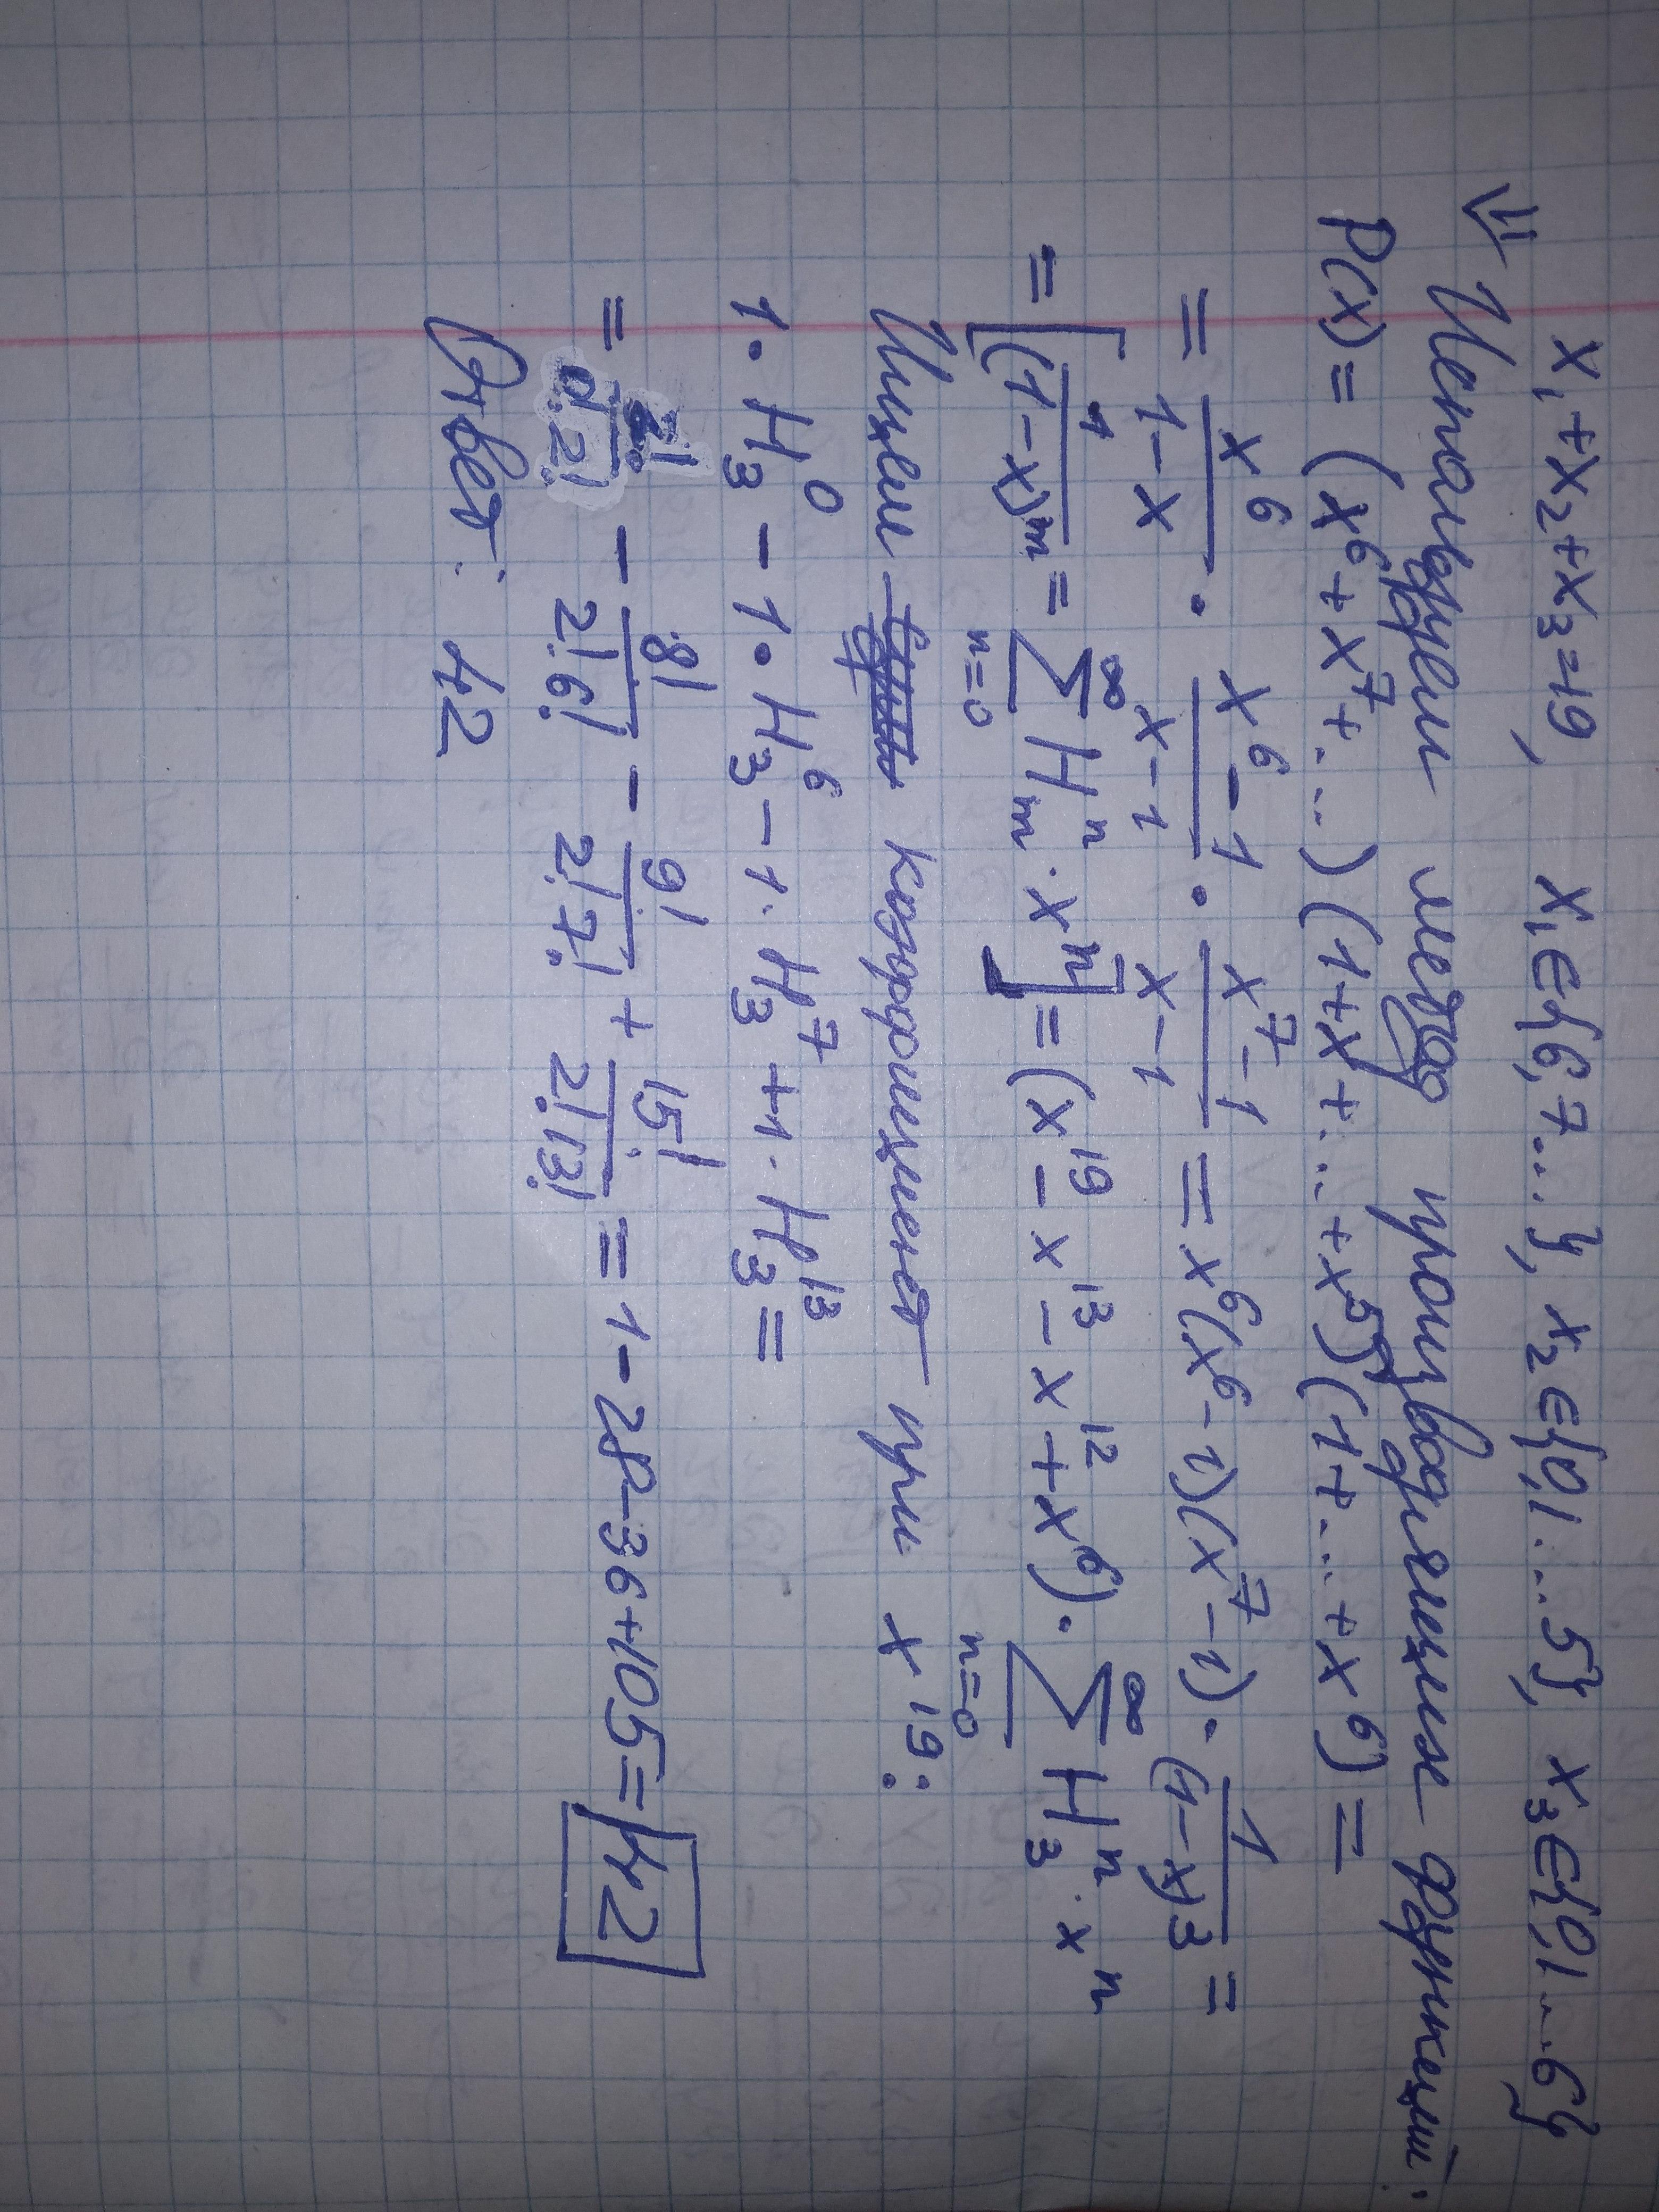 x₁+x₂+x₃=19, x₁∈{6,7...}, x₂∈{0,1...5}, x₃∈{0,1...6}
⇓ Используем метод производящих функций:
P(x) = (x⁶+x⁷+...)(1+x+...+x⁵)(1+...+x⁶) =
= x⁶/(1-x) · (x⁶-1)/(x-1) · (x⁷-1)/(x-1) = x⁶(x⁶-1)(x⁷-1) · 1/(1-x)³ =
= [1/(1-x)ᵐ = ∑_{n=0}^{∞} H_m^n · xⁿ] = (x¹⁹ - x¹³ - x¹² + x⁶) · ∑_{n=0}^{∞} H_3^n · xⁿ
Ищем коэффициент при x¹⁹:
1 · H_3^0 - 1 · H_3^6 - 1 · H_3^7 + 1 · H_3^13 =
= 2!/(0!2!) - 8!/(2!6!) - 9!/(2!7!) + 15!/(2!13!) = 1-28-36+105 = 42
Ответ: 42